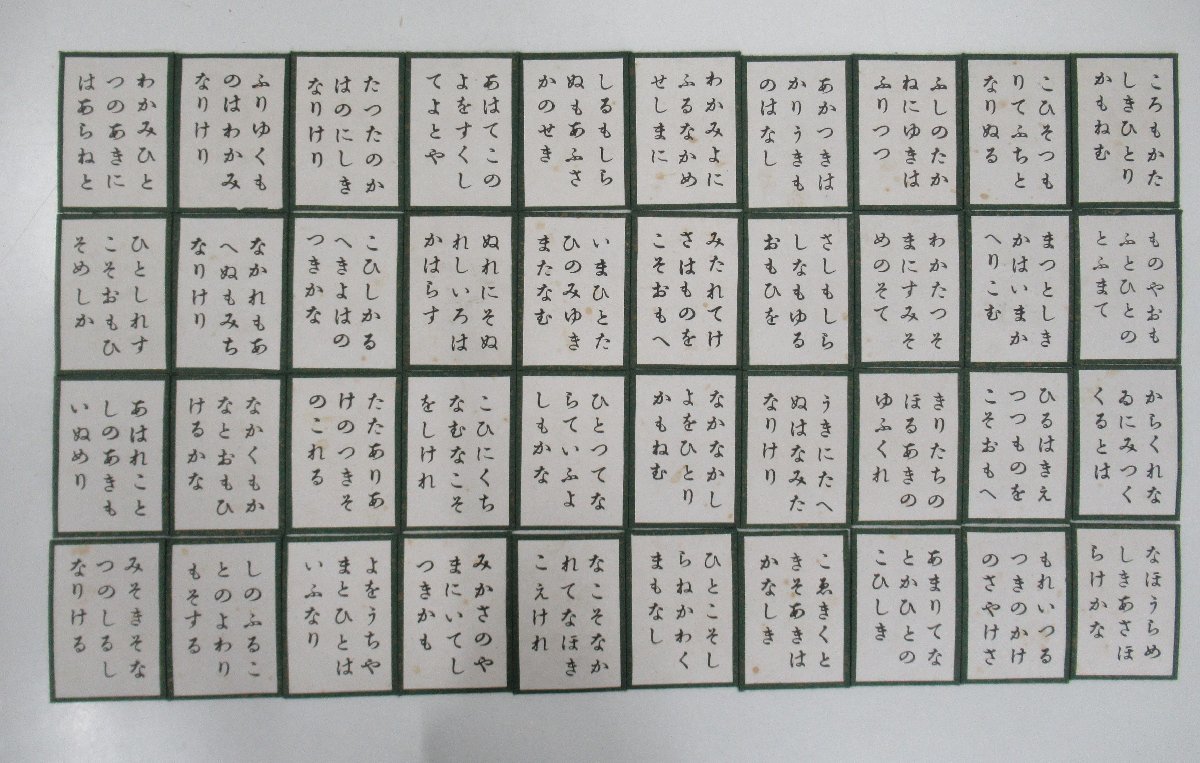 ころもかた
しきひとり
かもねむ
こひそつも
りてふちと
なりぬる
ふしのたか
ねにゆきは
ふりつつ
あかつきは
かりうきも
のはなし
わかみよに
ふるなかめ
せしまに
しるもしら
ぬもあふさ
かのせき
あはてこの
よをすくし
てよとや
たつたのか
はのにしき
なりけり
ふりゆくも
のはわかみ
なりけり
わかみひと
つのあきに
はあらねと
ものやおも
ふとひとの
とふまて
まつとしき
かはいまか
へりこむ
わかたつそ
まにすみそ
めのそて
さしもしら
しなもゆる
おもひを
みたれてけ
さはものを
こそおもへ
いまひとた
ひのみゆき
またなむ
ぬれにそぬ
れしいろは
かはらす
こひしかる
へきよはの
つきかな
なかれもあ
へぬもみち
なりけり
ひとしれす
こそおもひ
そめしか
からくれな
ゐにみつく
くるとは
ひるはきえ
つつものを
こそおもへ
きりたちの
ほるあきの
ゆふくれ
うきにたへ
ぬはなみた
なりけり
なかなかし
よをひとり
かもねむ
ひとつてな
らていふよ
しもかな
こひにくち
なむなこそ
をしけれ
たたありあ
けのつきそ
のこれる
なかくもか
なとおもひ
けるかな
あはれこと
しのあきも
いぬめり
なほうらめ
しきあさほ
らけかな
もれいつる
つきのかけ
のさやけさ
あまりてな
とかひとの
こひしき
こゑきくと
きそあきは
かなしき
ひとこそし
らねかわく
まもなし
なこそなか
れてなほき
こえけれ
みかさのや
まにいてし
つきかも
よをうちや
まとひとは
いふなり
しのふるこ
とのよわり
もそする
みそきそな
つのしるし
なりける